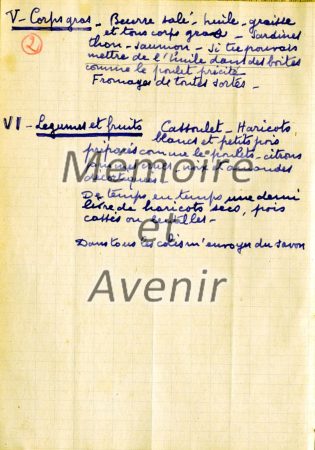 V - Corps gras - Beurre salé - huile - graisse
et tous corps gras - Sardines
2
thon - saumon - Si tu pouvais
mettre de l'huile dans des boites
comme le poulet précité
Fromages de toutes sortes -
VI - Légumes et fruits Cassoulet - Haricots
blancs et petits pois
préparés comme le poulet - citrons
noix et amandes
De temps en temps une demi
livre de haricots secs, pois
cassés ou lentilles -
Dans tous les colis m'envoyer du savon
Mémoire
et
Avenir